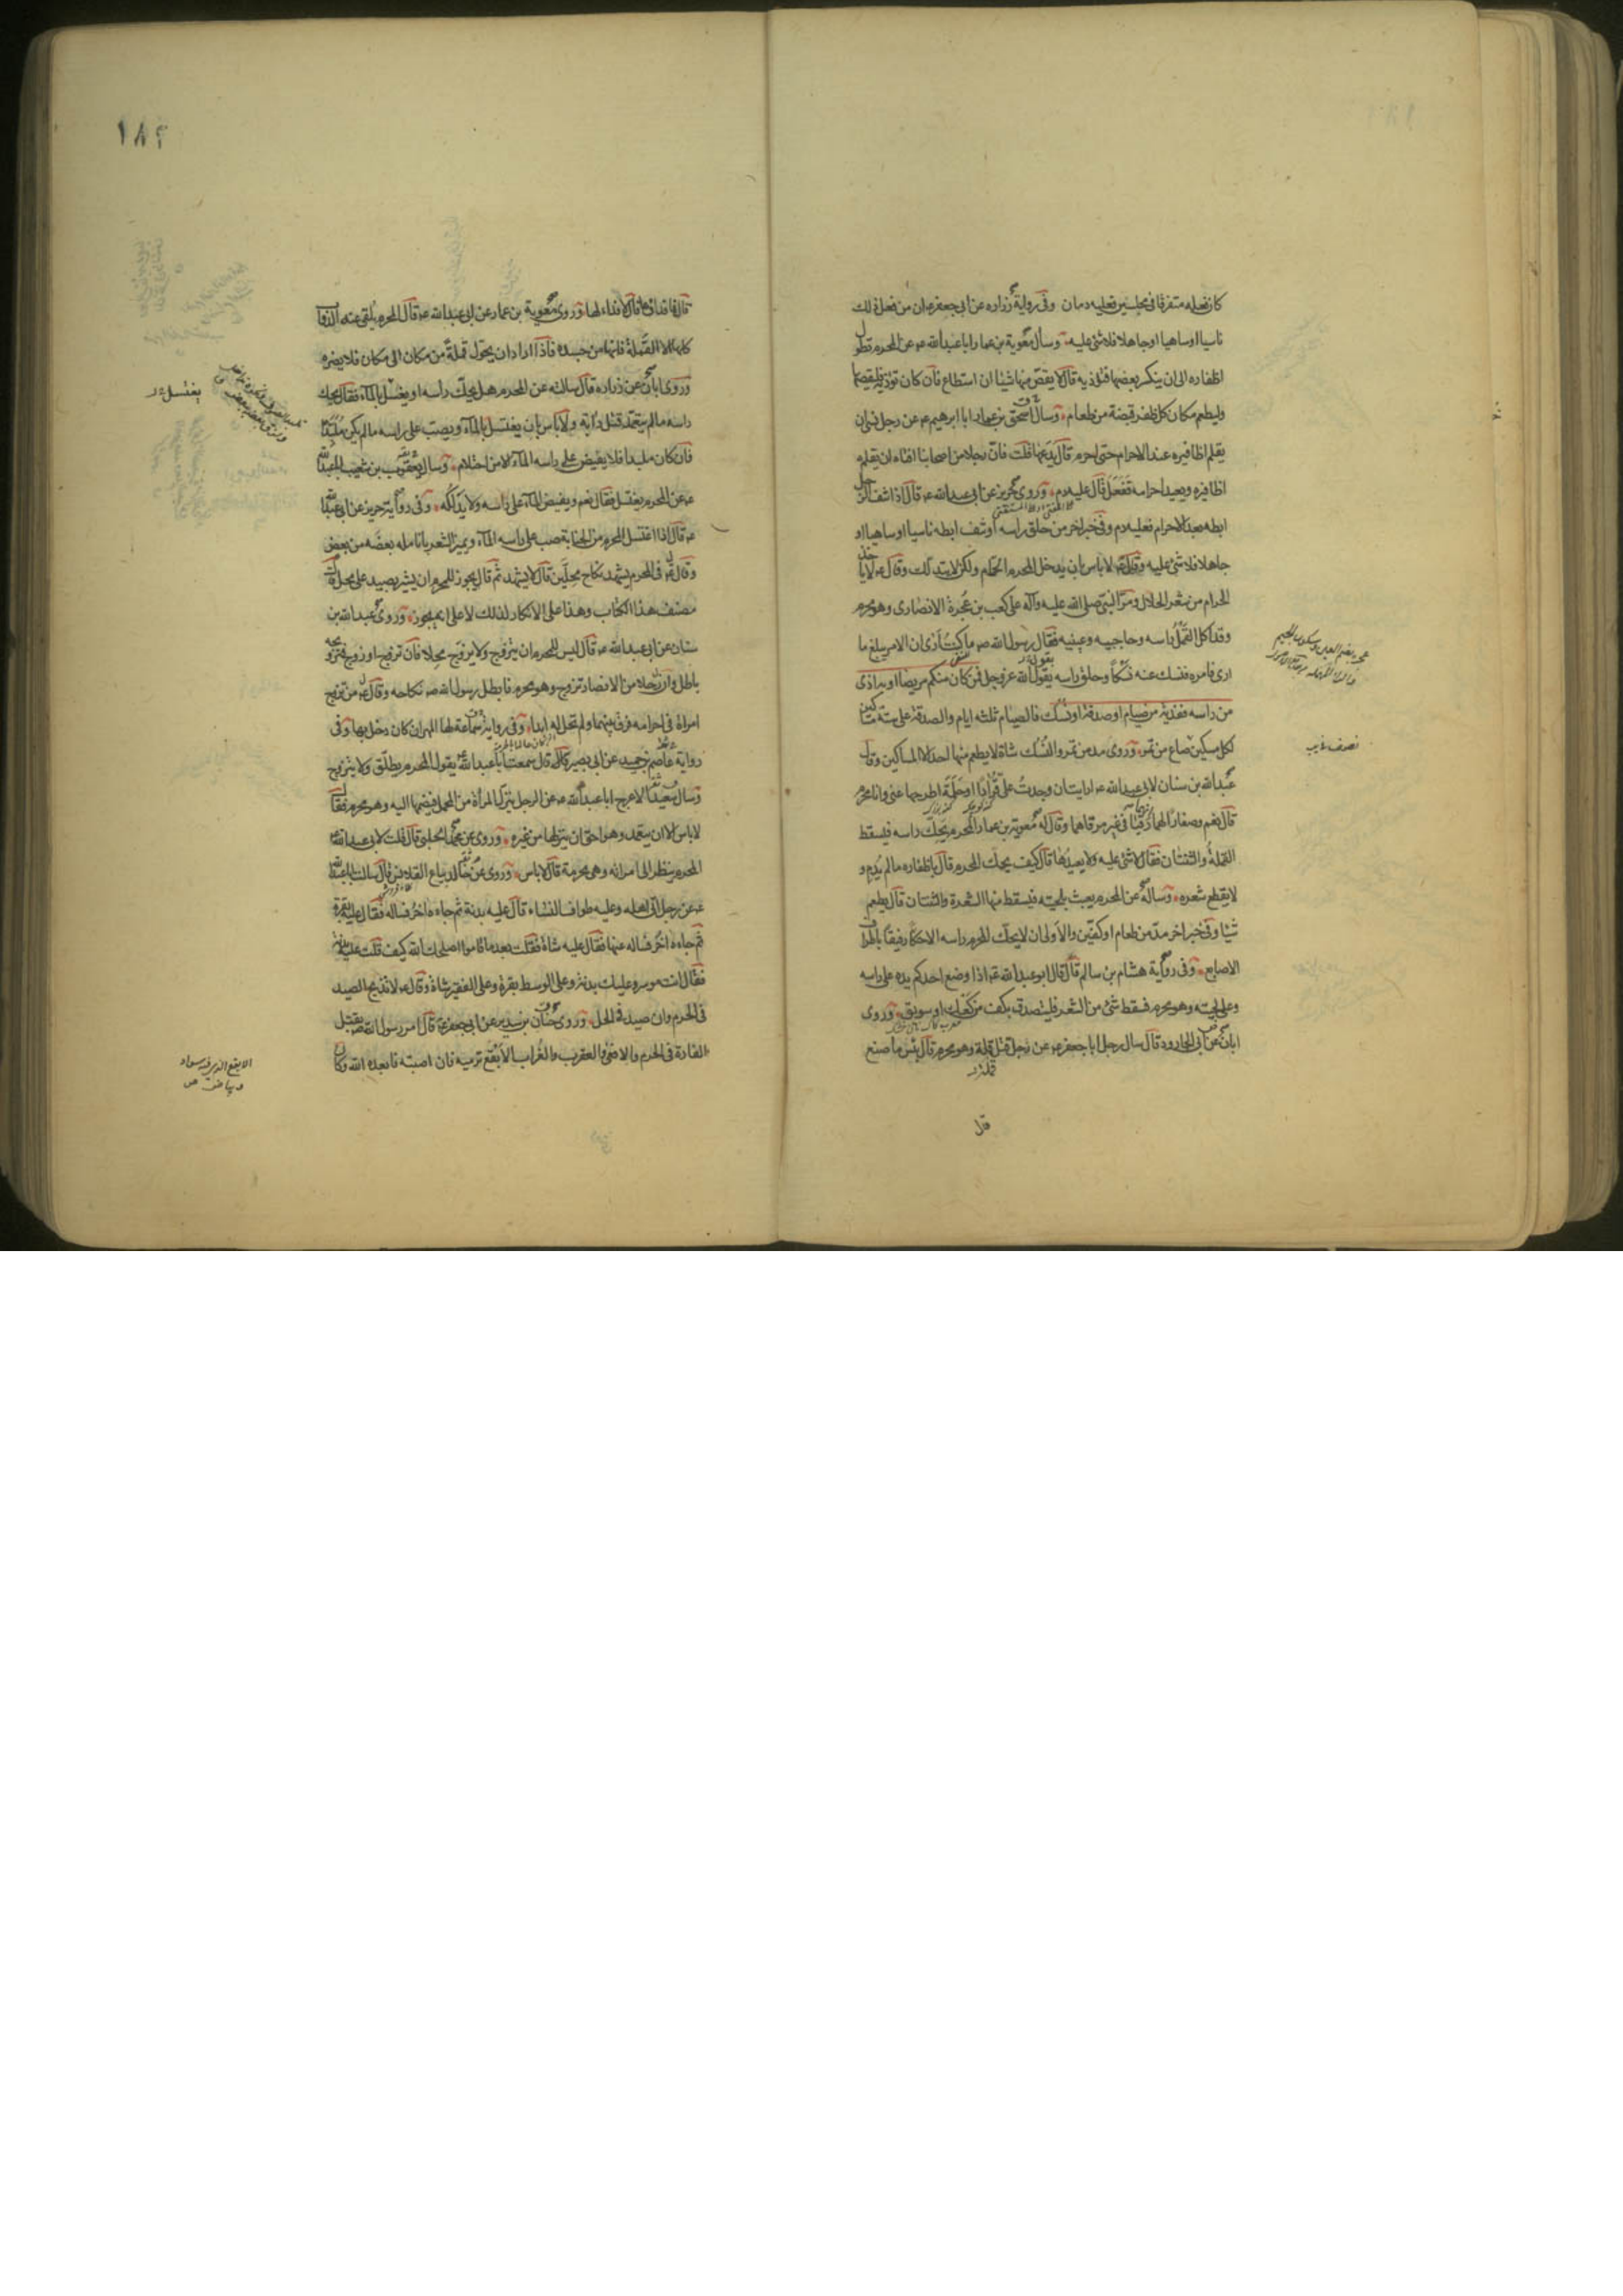 كان فعله متفرقا في مجلسين فعليه دمان وفي رواية زراره عن ابي جعفر ع ان من فعل ذلك
ناسيا او ساهيا او جاهلا فلا شئ عليه وسال معوية بن عمار ابا عبد الله ع عن المحرم تطول
اظفاره الى ان ينكسر بعضها فتؤذيه قال لا يقص منها شيئا ان استطاع فان كان تؤذيه فليقصها
وليطعم مكان كل ظفر قبضة من طعام وسال اسحق بن عمار ابا ابرهيم ع عن رجل نسي ان
يقلم اظافيره عند الاحرام حتى احرم قال يدعها قلت فان رجلا من اصحابنا افتاه ان يقلم
اظافيره ويعيد احرامه ففعل قال عليه دم وروى حريز عن ابي عبد الله ع قال اذا نتف الرجل
ابطه بعد الاحرام فعليه دم وفي خبر اخر من حلق راسه او نتف ابطه ناسيا او ساهيا او
جاهلا فلا شئ عليه وقال ع لا باس بان يدخل المحرم الحمام ولكن لا يتدلك وقال ع لا ياخذ
الحرام من شعر الحلال ومر النبي صلى الله عليه وآله على كعب بن عجرة الانصارى وهو محرم
وقد اكل القمل راسه وحاجبيه وعينيه فقال رسول الله ص ما كنت ارى ان الامر يبلغ ما
ارى فامره فنسك عنه نسكا وحلق راسه يقول الله عز وجل فمن كان منكم مريضا او به اذى
من راسه ففدية من صيام او صدقة او نسك فالصيام ثلثه ايام والصدقة على ستة مساكين
لكل مسكين صاع من تمر وروى مد من تمر والنسك شاة لا يطعم منها احد الا المساكين وقال
عبد الله بن سنان لابي عبد الله ع ارايت ان وجدت علي قرادا او حلمة اطرحهما عني وانا محرم
قال نعم وصغارا لهما انهما رقيا في غير مرقاهما وقال له معوية بن عمار المحرم يحك راسه فيسقط
القملة والثنتان فقال لا شئ عليه ولا يعيدها قال كيف يحك المحرم قال باظفاره ما لم يدم و
لا يقطع شعره وساله عن المحرم يعبث بلحيته فيسقط منها الشعرة والثنتان قال يطعم
شيئا وفي خبر اخر مد من طعام او كفين والاولى ان لا يحك المحرم راسه الا حكا رفيقا باطراف
الاصابع وفي رواية هشام بن سالم قال قال ابو عبد الله ع اذا وضع احدكم يده على راسه
وعلى لحيته وهو محرم فسقط شئ من الشعر فليتصدق بكف من كعك او سويق وروى
ابان عن ابي الجارود قال سال رجل ابا جعفر ع عن رجل قتل قملة وهو محرم قال بئس ما صنع
قال
١٨٢
قال فما فداؤها قال لا فداء لها وروى معوية بن عمار عن ابي عبد الله ع قال المحرم يلقى عنه الدواب
كلها الا القملة فانها من جسده فاذا اراد ان يحول قملة من مكان الى مكان فلا يضره
وروى ابان عن زراره قال سالته عن المحرم هل يحك راسه او يغتسل بالماء فقال يحك
راسه ما لم يتعمد قتل دابة ولا باس بان يغتسل بالماء ويصب على راسه ما لم يكن ملبدا
فان كان ملبدا فلا يفيض على راسه الماء الا من احتلام وسال يعقوب بن شعيب ابا عبد الله
ع عن المحرم يغتسل فقال نعم ويفيض الماء على راسه ولا يدلكه وفي رواية حريز عن ابي عبد الله
ع قال اذا اغتسل المحرم من الجنابة صب على راسه الماء ويميز الشعر بانامله بعضه من بعض
وقال ع في المحرم يشهد نكاح محلين قال لا يشهد ثم قال يجوز للمحرم ان يشير بصيد على محل قال
مصنف هذا الكتاب وهذا على الانكار لذلك لا على انه يجوز وروى عبد الله بن
سنان عن ابي عبد الله ع قال ليس للمحرم ان يتزوج ولا يزوج محلا فان تزوج او زوج فتزويجه
باطل وان رجلا من الانصار تزوج وهو محرم فابطل رسول الله ص نكاحه وقال ع من تزوج
امراة في احرامه فرق بينهما ولم تحل له ابدا وفي رواية سماعة لها المهر ان كان دخل بها وفي
رواية عاصم بن حميد عن ابي بصير قال سمعت ابا عبد الله ع يقول المحرم يطلق ولا يتزوج
وسال سعيد الاعرج ابا عبد الله ع عن الرجل ينزل المراة من المحمل فيضمها اليه وهو محرم فقال
لا باس الا ان يتعمد وهو احق ان ينزلها من غيره وروى عن محمد الحلبي قال قلت لابي عبد الله ع
المحرم ينظر الى امراته وهي محرمة قال لا باس وروى عن خالد بياع القلانس قال سالت ابا عبد الله
ع عن رجل اتى اهله وعليه طواف النساء قال عليه بدنة ثم جاءه اخر فساله فقال عليه بقرة
ثم جاءه اخر فساله عنها فقال عليه شاة فقلت بعد ما قاموا اصلحك الله كيف قلت عليه بدنة
فقال انت موسر وعليك بدنة وعلى الوسط بقرة وعلى الفقير شاة وقال ع لا تذبح الصيد
في الحرم وان صيد في الحل وروى حنان بن سدير عن ابي جعفر ع قال امر رسول الله ص بقتل
الفارة في الحرم والافعى والعقرب والغراب الابقع ترميه فان اصبته فابعده الله وكان
يغتسل
الابقع الذي فيه سواد
وبياض ص